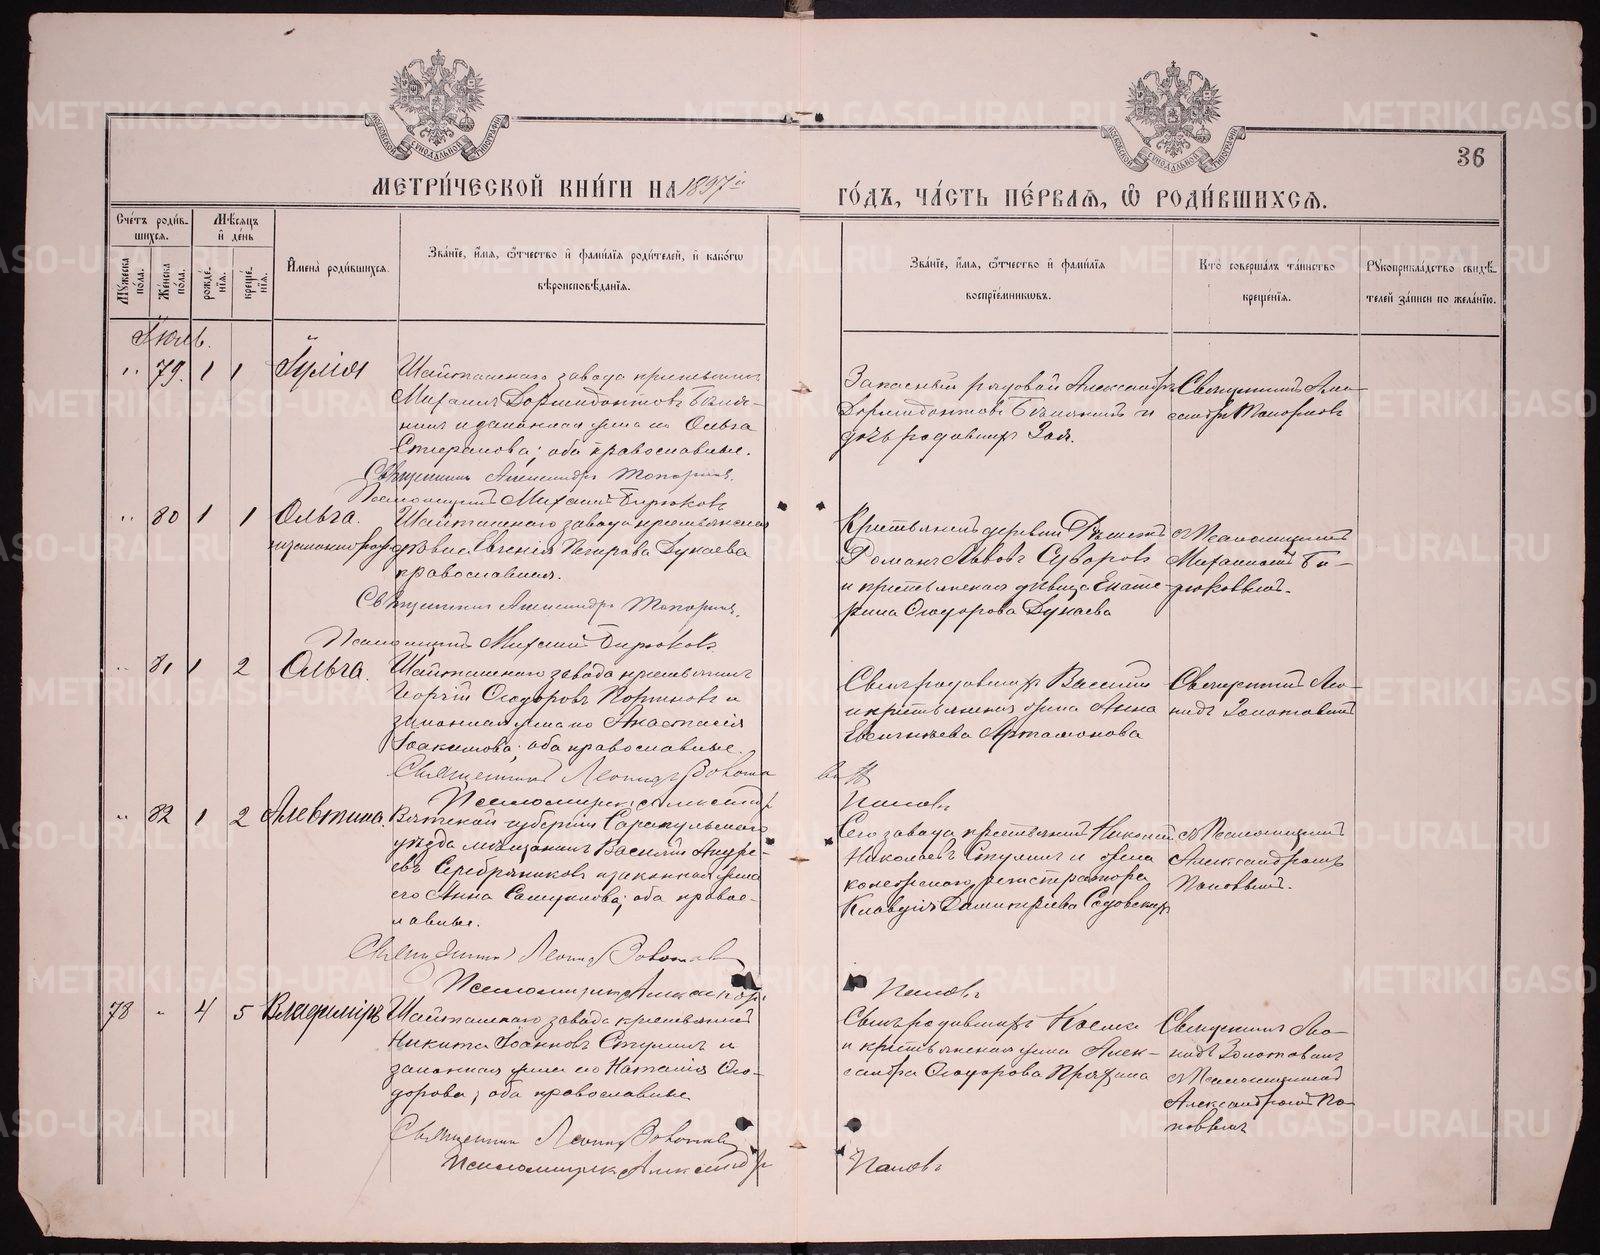 МЕТРИ́ЧЕСКОЙ КНИ́ГИ НА 1897й
ГО́ДЪ, ЧА́СТЬ ПЕ́РВАѦ, Ѡ҆ РОДИ́ВШИХСѦ.
36
Сче́тъ роди́в-
шихсѧ.
Мꙋ́жеска по́ла.
Же́нска по́ла.
Мѣ́сѧцъ
и҆ де́нь
рожде́-
нїѧ.
креще́-
нїѧ.
И҆мена̀ роди́вшихсѧ.
Зва́нїе, и҆́мѧ, ѻ҆́тчество и҆ фами́лїѧ роди́телей, и҆ како́гѡ
вѣроисповѣ́данїѧ.
Зва́нїе, и҆́мѧ, ѻ҆́тчество и҆ фами́лїѧ
воспрїе́мникѡвъ.
Кто̀ соверша́лъ та́инство
креще́нїѧ.
Рꙋкоприкла́дство свидѣ́-
телей за́писи по жела́нїю.
Іюль.
" 79. 1 1 Іулія
Шайтанскаго завода крестьянинъ
Михаилъ Дормидонтовъ
и законная жена его Ольга
Стефанова; оба православные.
Священникъ Александръ Топорковъ.
Псаломщикъ Михаилъ Бирюковъ
Запасный рядовой Александръ
Дормидонтовъ и
дочь Зоя.
Священникъ Але-
ксандръ Топорковъ
" 80 1 1 Ольга.
незаконнорожд
Шайтанскаго завода крестьянская
дѣвица Евгенія Петрова Дунаева
православная.
Священникъ Александръ Топорковъ.
Псаломщикъ Михаилъ Бирюковъ
Крестьянинъ деревни Рѣшетъ
Романъ Львовъ Суворовъ
и крестьянская дѣвица Екате-
рина Ѳеодорова Дунаева
съ Псаломщикомъ
Михаиломъ Би-
рюковымъ.
" 81 1 2 Ольга.
Шайтанскаго завода крестьянинъ
Георгій Ѳеодоровъ и
законная жена его Анастасія
Іоакимова; оба православные.
Священникъ Леонидъ
Псаломщикъ Александръ
Поповъ
Василій
и крестьянская жена Анна
Евгеніева Артамонова
Священникъ Лео-
нидъ
" 82 1 2 Алевтина.
Вятской губерніи Сарапульскаго
уѣзда мѣщанинъ Василій Андре-
евъ Серебряниковъ и законная жена
его Анна оба правос-
лавные.
Священникъ Леонидъ
Псаломщикъ Александръ
Поповъ
Сего завода крестьянинъ Николай
Николаевъ Стулинъ и жена
коллежскаго регистратора
Клавдія Димитріева Садовская
съ Псаломщикомъ
Александромъ
Поповымъ.
78 " 4 5 Владиміръ
Шайтанскаго завода крестьянинъ
Никита Іоанновъ Стулинъ и
законная жена его Наталія Ѳео-
дорова; оба православные
Священникъ Леонидъ
Псаломщикъ Александръ
Поповъ
Косма
и крестьянская жена Алек-
сандра Ѳеодорова Пряхина
Священникъ Лео-
нидъ
съ Псаломщикомъ
Александромъ По-
повымъ
METRIKI.GASO-URAL.RU